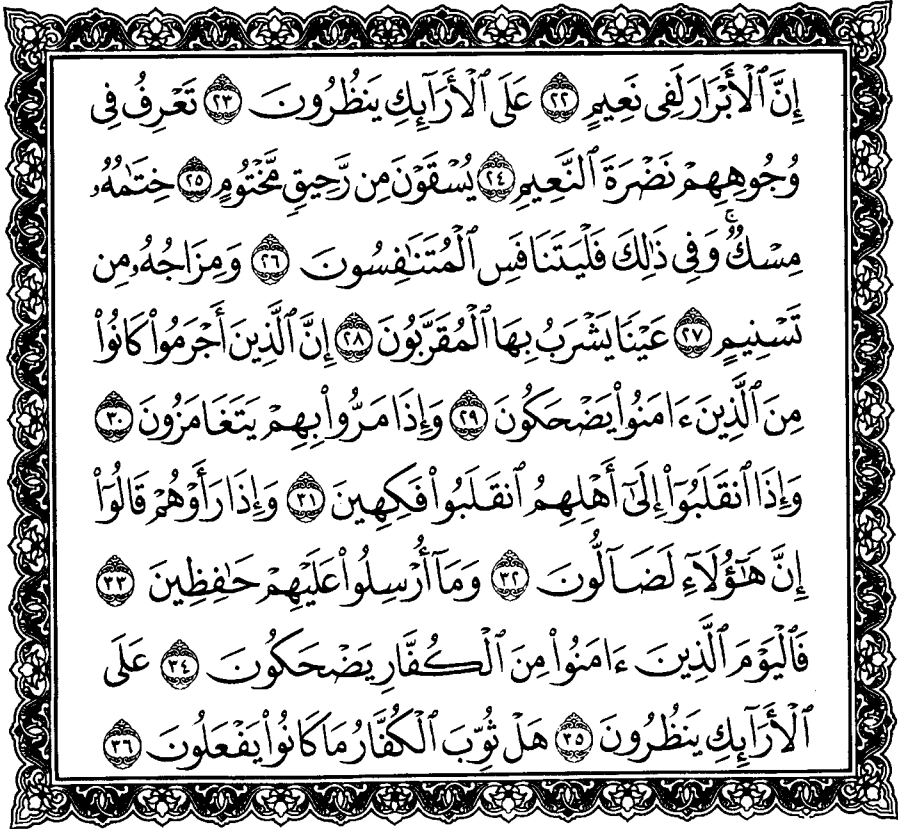 إِنَّ ٱلْأَبْرَارَ لَفِى نَعِيمٍ ٢٢ عَلَى ٱلْأَرَآئِكِ يَنظُرُونَ ٢٣ تَعْرِفُ فِى
وُجُوهِهِمْ نَضْرَةَ ٱلنَّعِيمِ ٢٤ يُسْقَوْنَ مِن رَّحِيقٍ مَّخْتُومٍ ٢٥ خِتَٰمُهُۥ
مِسْكٌ ۚ وَفِى ذَٰلِكَ فَلْيَتَنَافَسِ ٱلْمُتَنَٰفِسُونَ ٢٦ وَمِزَاجُهُۥ مِن
تَسْنِيمٍ ٢٧ عَيْنًا يَشْرَبُ بِهَا ٱلْمُقَرَّبُونَ ٢٨ إِنَّ ٱلَّذِينَ أَجْرَمُوا۟ كَانُوا۟
مِنَ ٱلَّذِينَ ءَامَنُوا۟ يَضْحَكُونَ ٢٩ وَإِذَا مَرُّوا۟ بِهِمْ يَتَغَامَزُونَ ٣٠
وَإِذَا ٱنقَلَبُوٓا۟ إِلَىٰٓ أَهْلِهِمُ ٱنقَلَبُوا۟ فَكِهِينَ ٣١ وَإِذَا رَأَوْهُمْ قَالُوٓا۟
إِنَّ هَٰٓؤُلَآءِ لَضَآلُّونَ ٣٢ وَمَآ أُرْسِلُوا۟ عَلَيْهِمْ حَٰفِظِينَ ٣٣
فَٱلْيَوْمَ ٱلَّذِينَ ءَامَنُوا۟ مِنَ ٱلْكُفَّارِ يَضْحَكُونَ ٣٤ عَلَى
ٱلْأَرَآئِكِ يَنظُرُونَ ٣٥ هَلْ ثُوِّبَ ٱلْكُفَّارُ مَا كَانُوا۟ يَفْعَلُونَ ٣٦